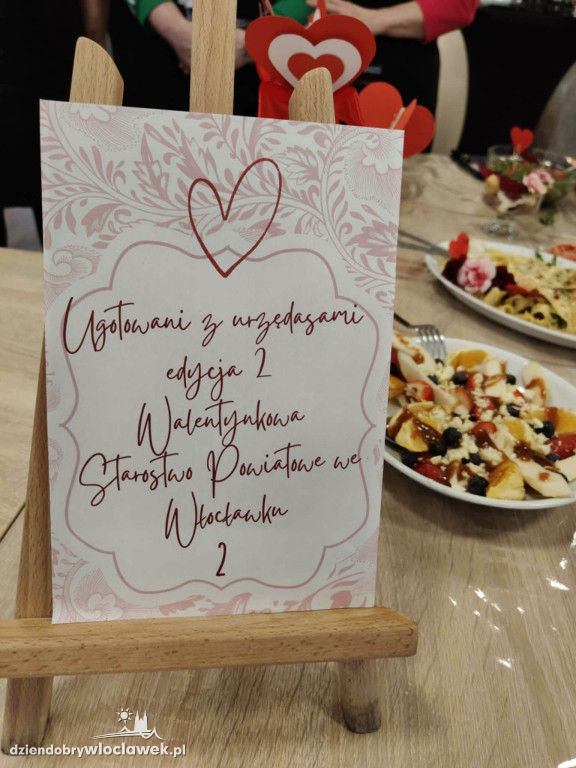 Ugotowani z urzędasami
edycja 2
Walentynkowa
Starostwo Powiatowe we
Włocławku
2
dziendobrywloclawek.pl